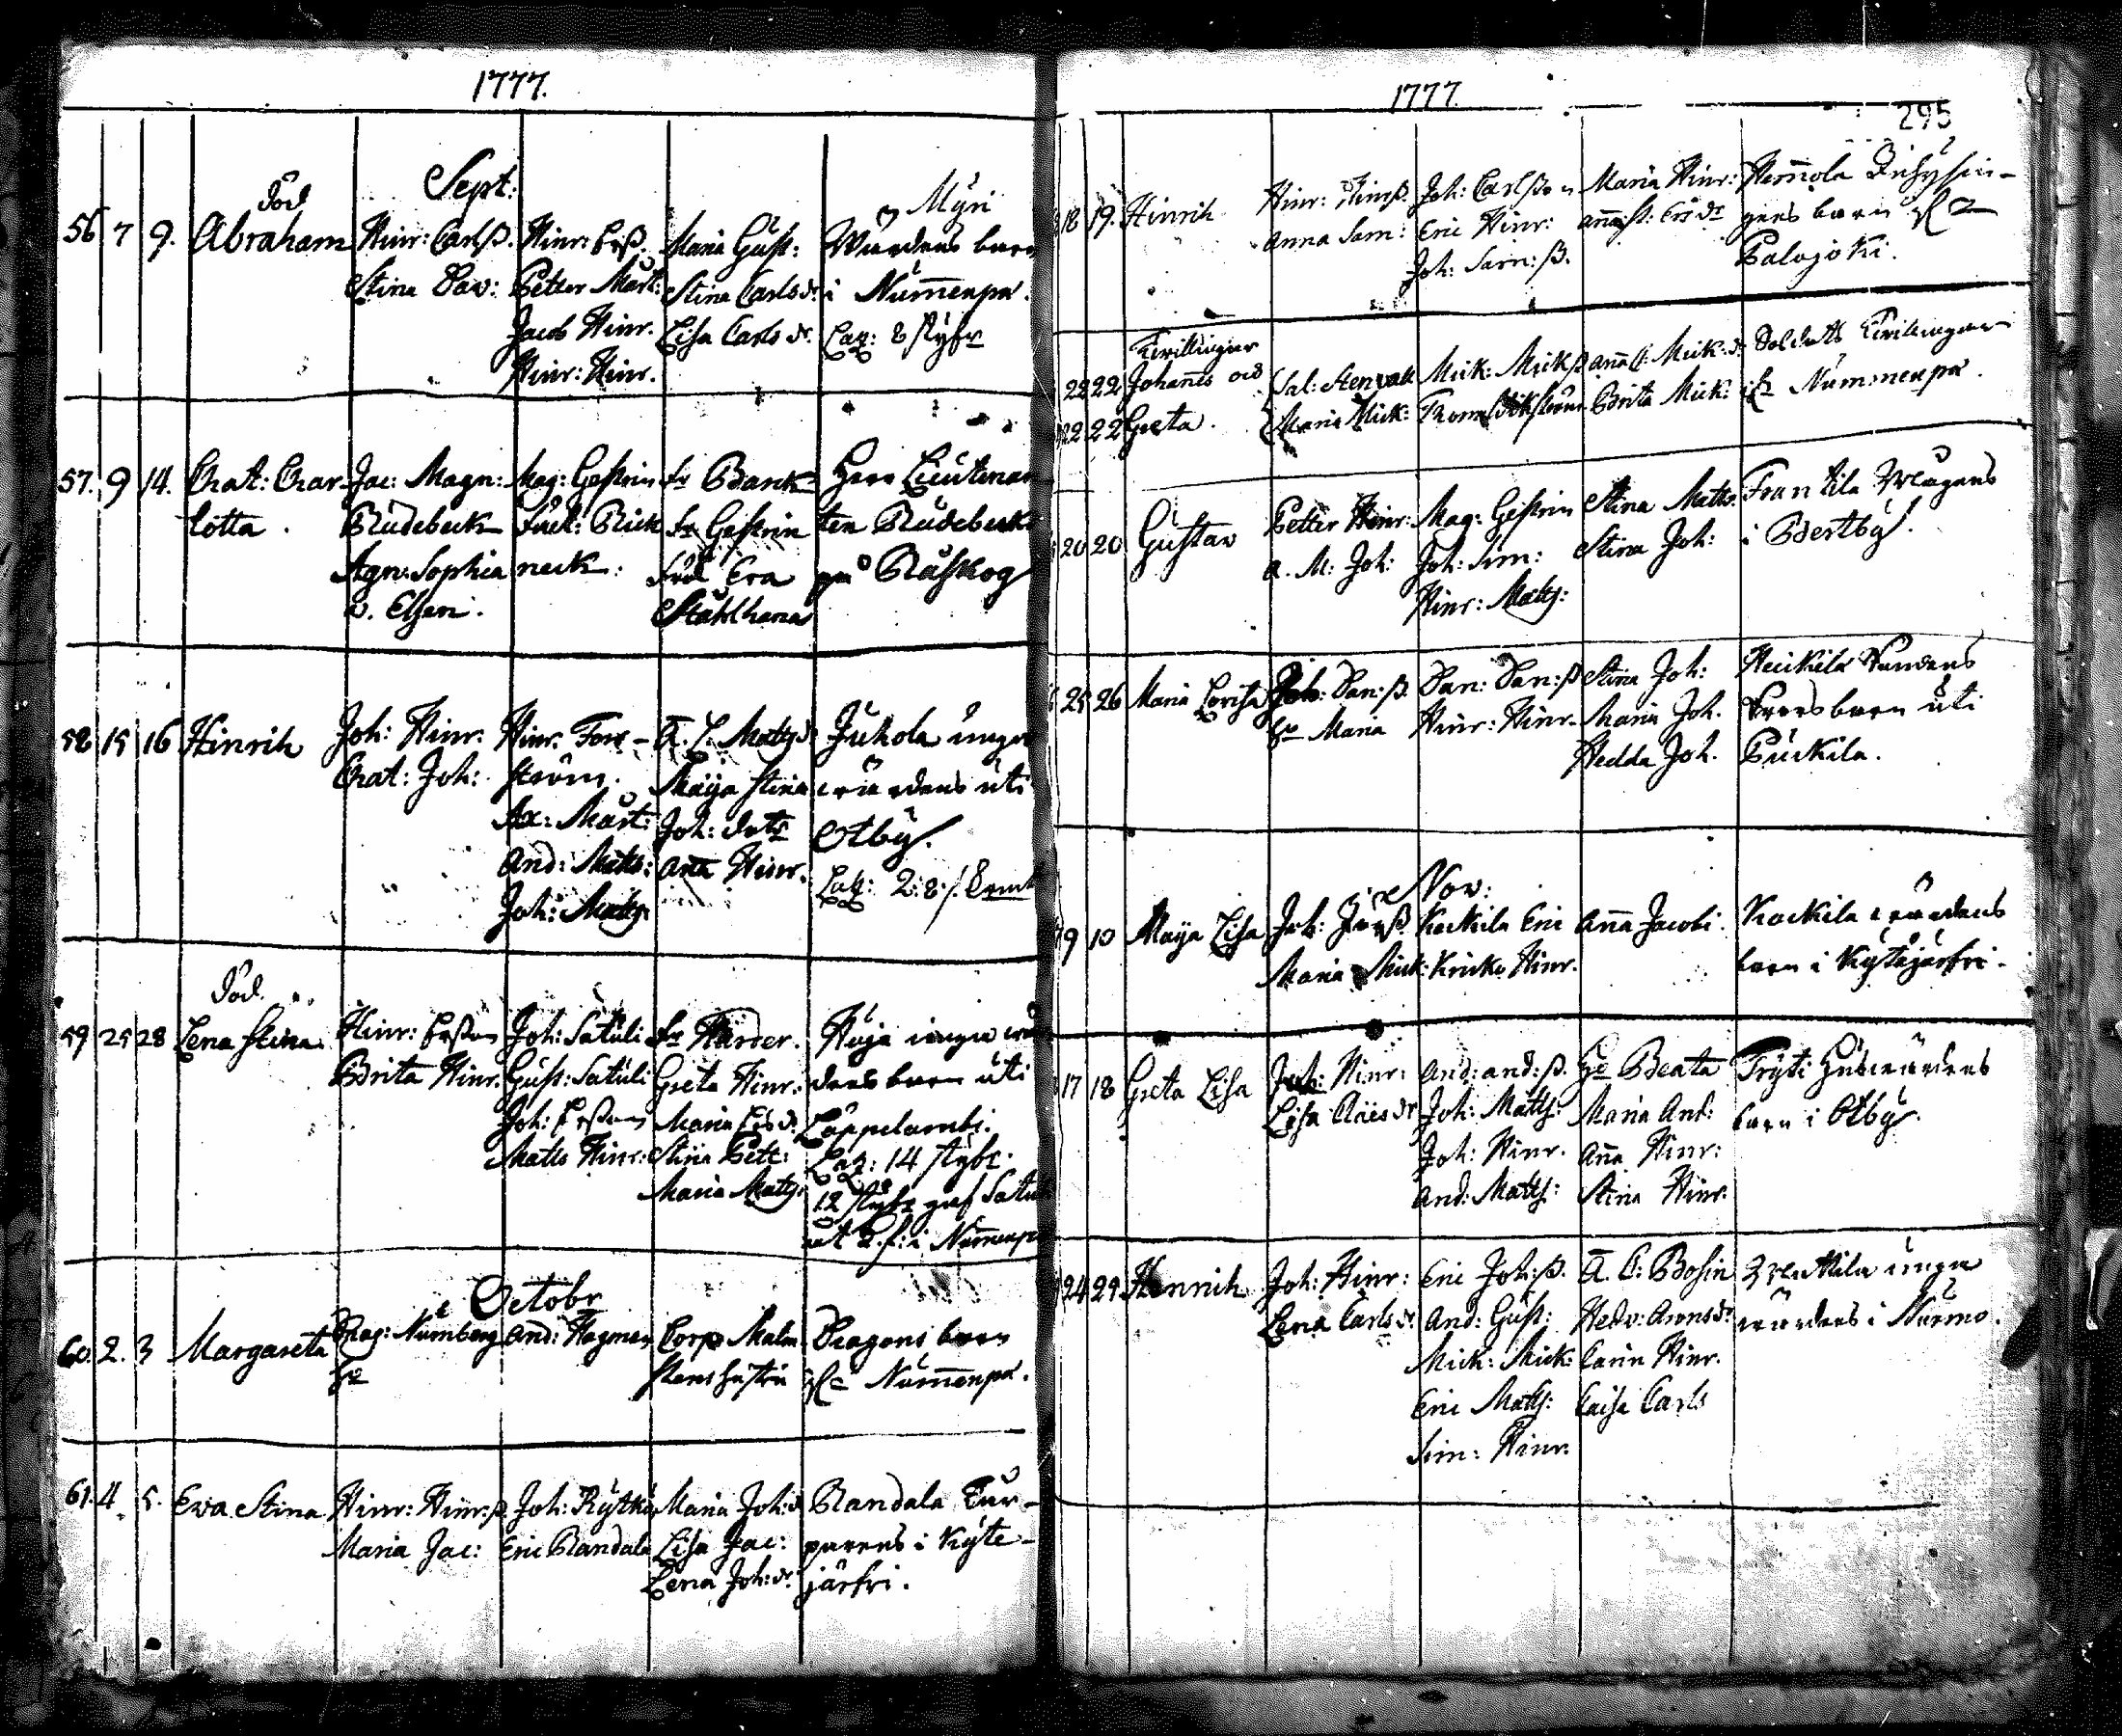 1777.
Sept:
56 7 9. Död Abraham
Hinr: Carlß.
Stina Dav:
Hinr: Erß.
Petter Mårt:
Jacob Hinr.
Hinr: Hinr.
Maria Gust:
Stina Carls dr
Lisa Carls dr.
Myri
Wärdens barn
i Numenpä.
Lag: 8 styfr
57. 9 14. Chat: Char-
lotta.
Jac: Magn:
Rudebeck
Agn: Sophia
v. Essen.
Mag: Gestrin
Fred: Rick
neck:
fr Banck
fr Gestrin
Eva
Stålhana
Herr Lieutenan
ten Rudebeck
på Råskog
58 15 16 Hinrik
Joh: Hinr.
Chat: Joh:
Hinr. Fors-
ström.
Ax: Mårt:
And: Matts:
Joh: Matts:
A. L. Matts dr
Maija Stina
Joh: dotr
Ana Hinr.
Juhola unga
wärdens uti
Otby.
Lag: 2:8:/.
59 25 28 Död. Lena Stina
Hinr: Erßon
Brita Hinr.
Joh: Satuli
Gust: Satuli
Joh: Erßon
Matts Hinr:
fr Harder.
Greta Hinr:
Maria Ers dr.
Stina Pett:
Maria Matts:
Hoja unga wär
dens barn uti
Loppelambi.
Lag: 14 styfr.
12 styfr gaf Satuli
i Numenpä
Octobr
60. 2. 3 Margareta
Drag: Numberg
And: Hagman
Corp Malm-
stens hustru
Dragons barn
Numenpä.
61. 4. 5. Eva Stina
Hinr: Hinr: ß
Maria Jac:
Joh: Rytkö
Eric Randala
Maria Joh: dr
Lisa Jac:
Lena Joh: dr.
Randala Tor-
parens i Kyte-
järfvi.
1777
295
18 19. Hinrik
Hinr: Hinrß.
Anna Sam:
Joh: Carlßon
Eric Hinr:
Joh: Sam: ß.
Maria Hinr:
Anna St: Ers dr
Hemola Inhysin-
gens barn
Palojoki.
Tvillingar
22 22 Johannes och
22 22 Greta.
Sal: Stenvall
Maria Mick:
Mick: Mickß
Thom: Ekström
Anna L: Mick: dr
Brita Mick:
Soldats Tvilingar
Nummenpä.
20 20 Gustav
Petter Hinr:
A. M: Joh:
Mag: Gestrin
Joh: Sim:
Hinr: Matts:
Stina Matts:
Stina Joh:
Frantila Mågens
i Bertby.
25 26 Maria Lovisa
Joh: Dan: ß.
Hr Maria
Dan: Dan: ß
Hinr: Hinr.
Stina Joh:
Maria Joh.
Hedda Joh.
Heickilä
barn uti
Puckila.
Nov:
9 10 Maija Lisa
Joh: Jörß.
Maria Mick:
Kockila Eric
Kricko Hinr.
Anna Jacobi.
Kockila wärdens
barn i Kytäjärfvi.
17 18 Greta Lisa
Joh: Hinr:
Lisa Claes dr
And: And: ß.
Joh: Matts:
Joh: Hinr.
And: Matts:
Hr Beata
Maria And:
Anna Hinr:
Stina Hinr.
Fryti Huswärdens
barn i Otby.
24 29 Henrich
Joh: Hinr:
Lena Carls dr.
Eric Joh: ß.
And: Gust:
Mick: Mick:
Eric Matts:
Sim: Hinr.
A. C: Bosin
Hedv: Arons dr
Carin Hinr.
Caisa Carls
unga
wärdens i Nurmo.